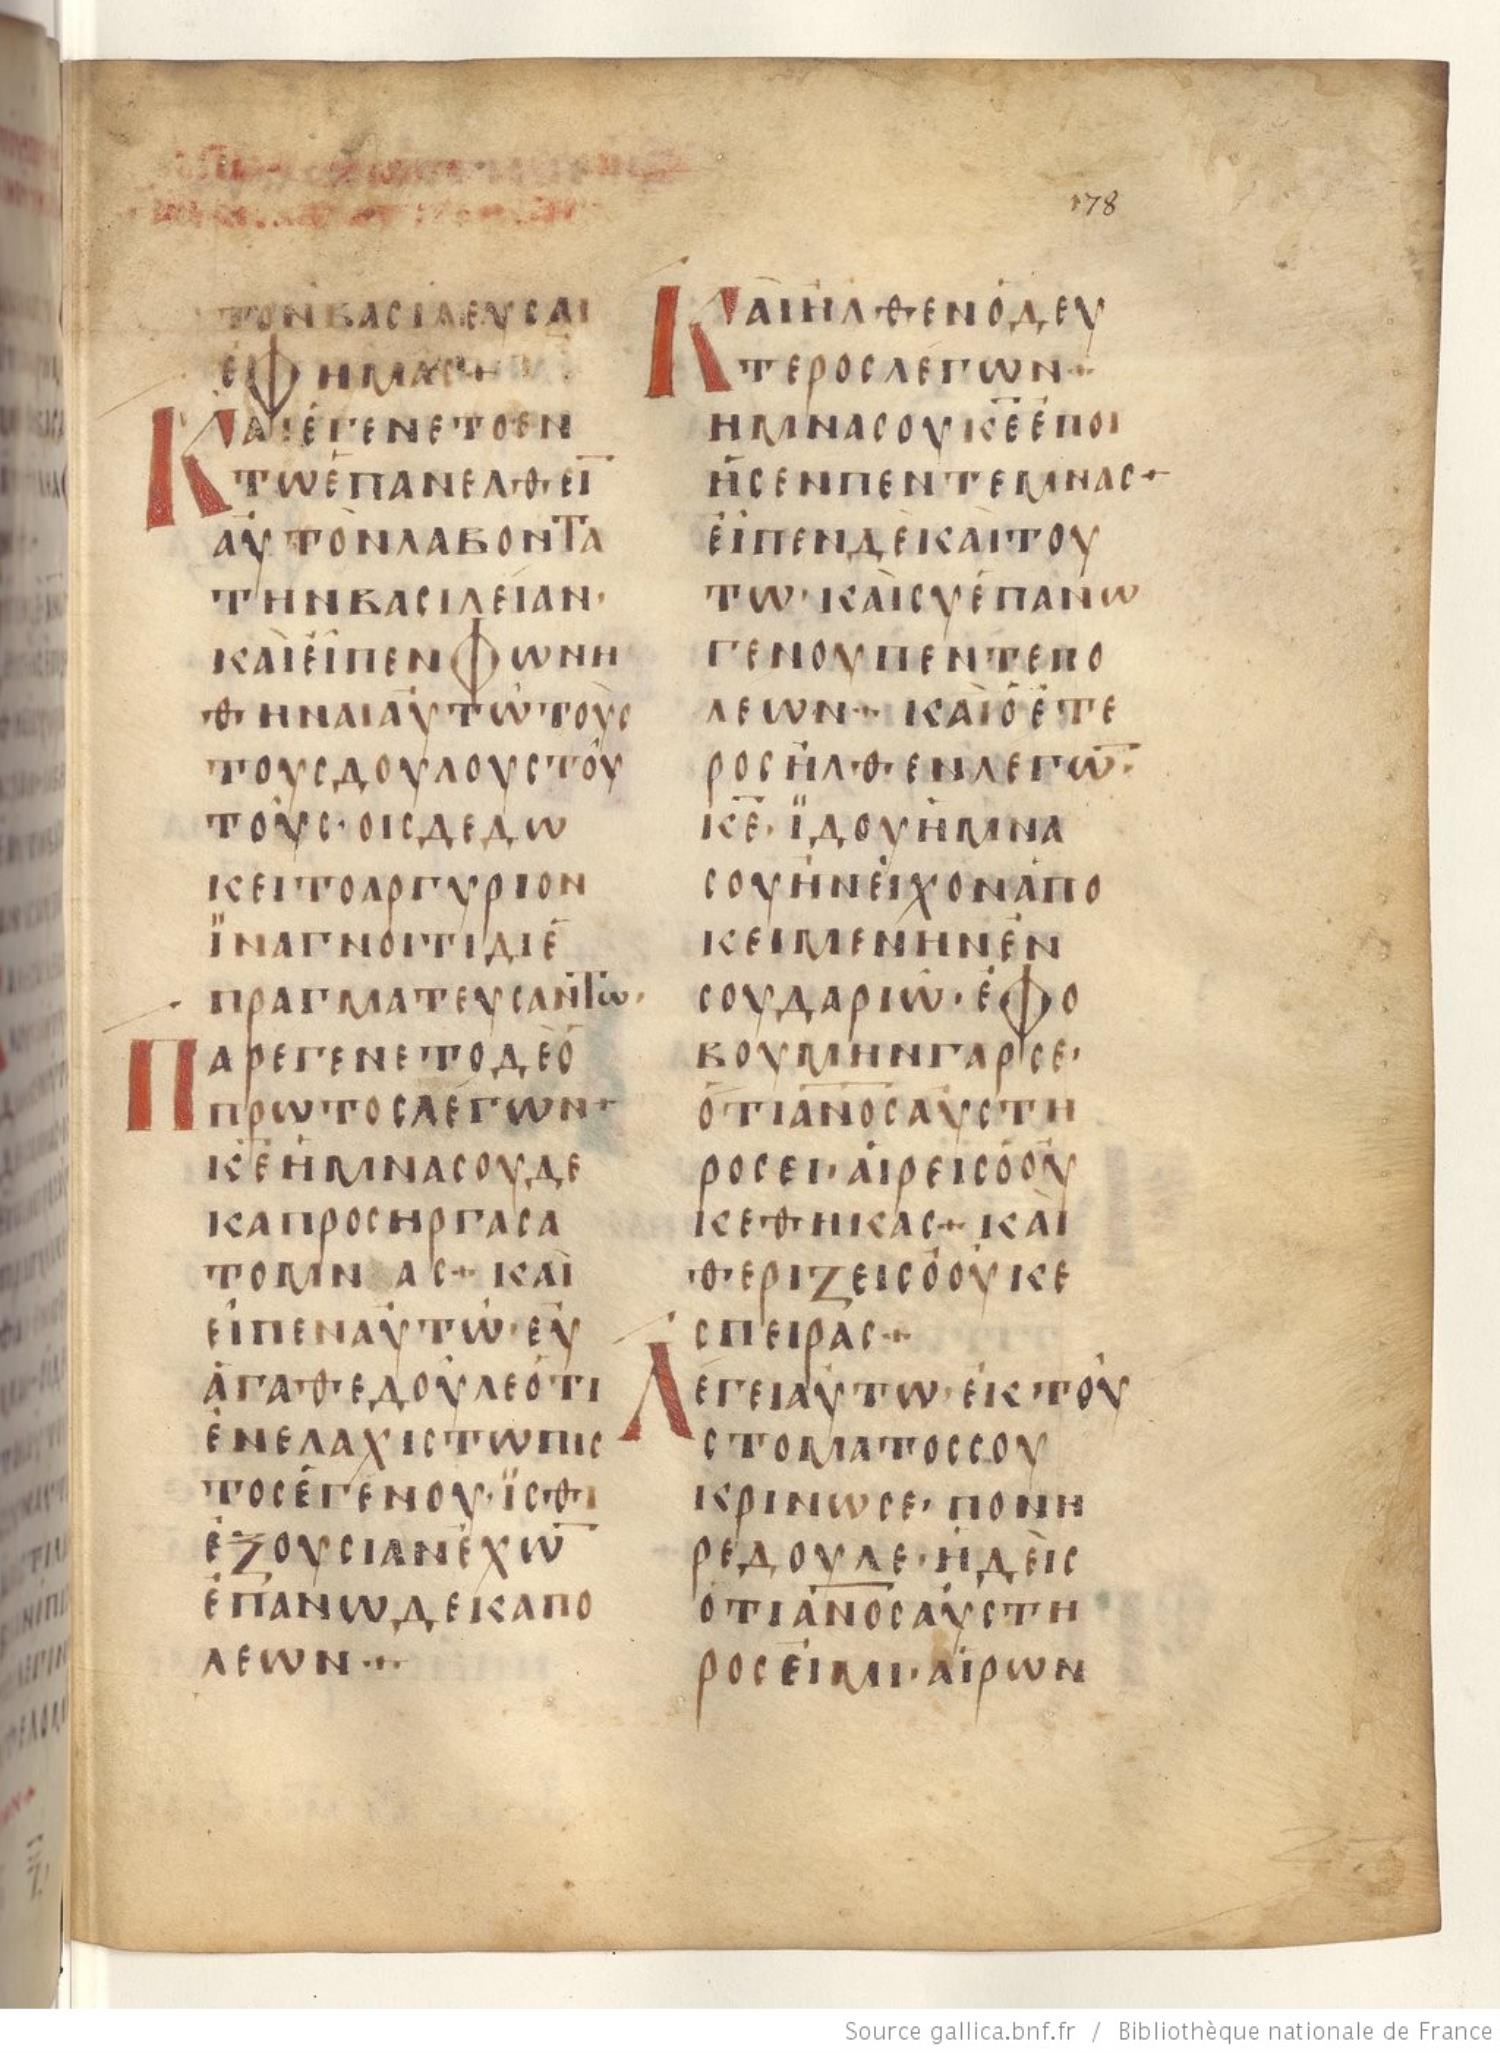 178
τονβασιλευσαι
ἐφημας+
Καιἐγενετοεν
τωἐπανελθεῑ
αὐτὸνλαβοντα
τηνβασιλείαν·
καὶεἶπενφωνη
θηναιαὐτῶτοὺς
τουςδουλουςτού
τοὺς·οιςδεδω
κειτοαργυριον
ϊναγνοιτιδιέ
πραγματευσαντω·
Παρεγενετοδεὁ
πρωτοςλέγων+
κ̅ε̅ἡμνασουδε
καπροσηργασα
τομνας+καὶ
εἶπεναὐτῶ·εὖ
ἀγαθεδοῦλεὅτι
ἐνελαχιστωπις
τοςἐγενου·ϊσθι
ἐξουσιανἐχω̅
ἐπανωδεκαπο
λεων+
Καιἦλθενὁδευ
τεροςλέγων+
ημνασουκ̅ε̅ἐποι
ησενπεντεμνας+
εἶπενδὲκαὶτου
τω·καὶσυἐπανω
γενουπεντεπο
λεων+καὶὁἑτε
ροςἦλθενλεγω̅·
κ̅ε̅·ϊδουἡμνα
σουἡνεἶχοναπο
κειμενηνἐν
σουδαριω·ἐφο
βουμηνγαρσε·
ὅτια̅ν̅ο̅ςαυστη
ροςει·αἱρειςὁοὐ
κεθηκας+καὶ
θεριζειςὁοὐκε
σπειρας+
Λεγειαὐτω·ἐκτοῦ
στοματοςσου
κρινωσε·πονη
ρεδουλε·ἠδεὶς
ὅτια̅ν̅ο̅ςαὐστη
ροςεἰμι·αἴρων
Source gallica.bnf.fr / Bibliothèque nationale de France